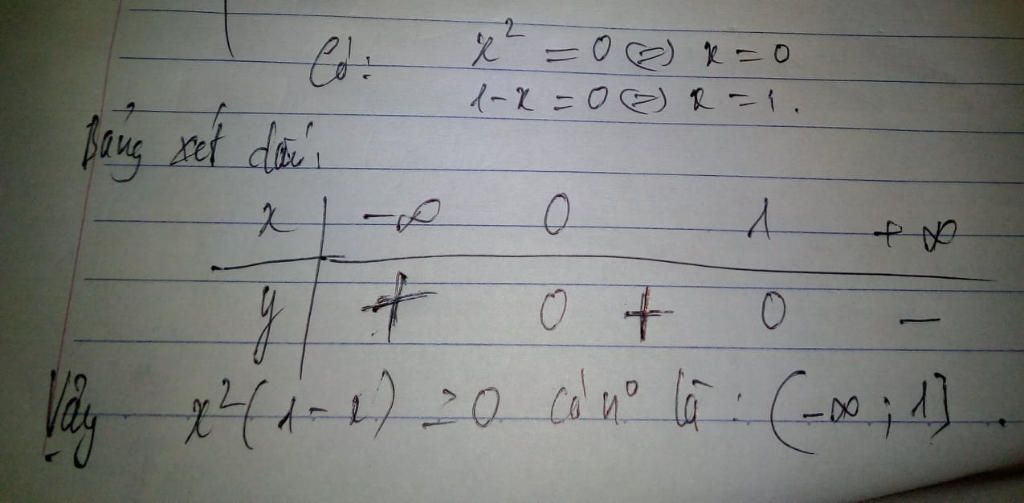 Có: x² = 0 ⇔ x = 0
1-x = 0 ⇔ x = 1.
Bảng xét dấu:
x -∞ 0 1 +∞
y + 0 + 0 -
Vậy x²(1-x) ≥ 0 có nº là: (-∞; 1].